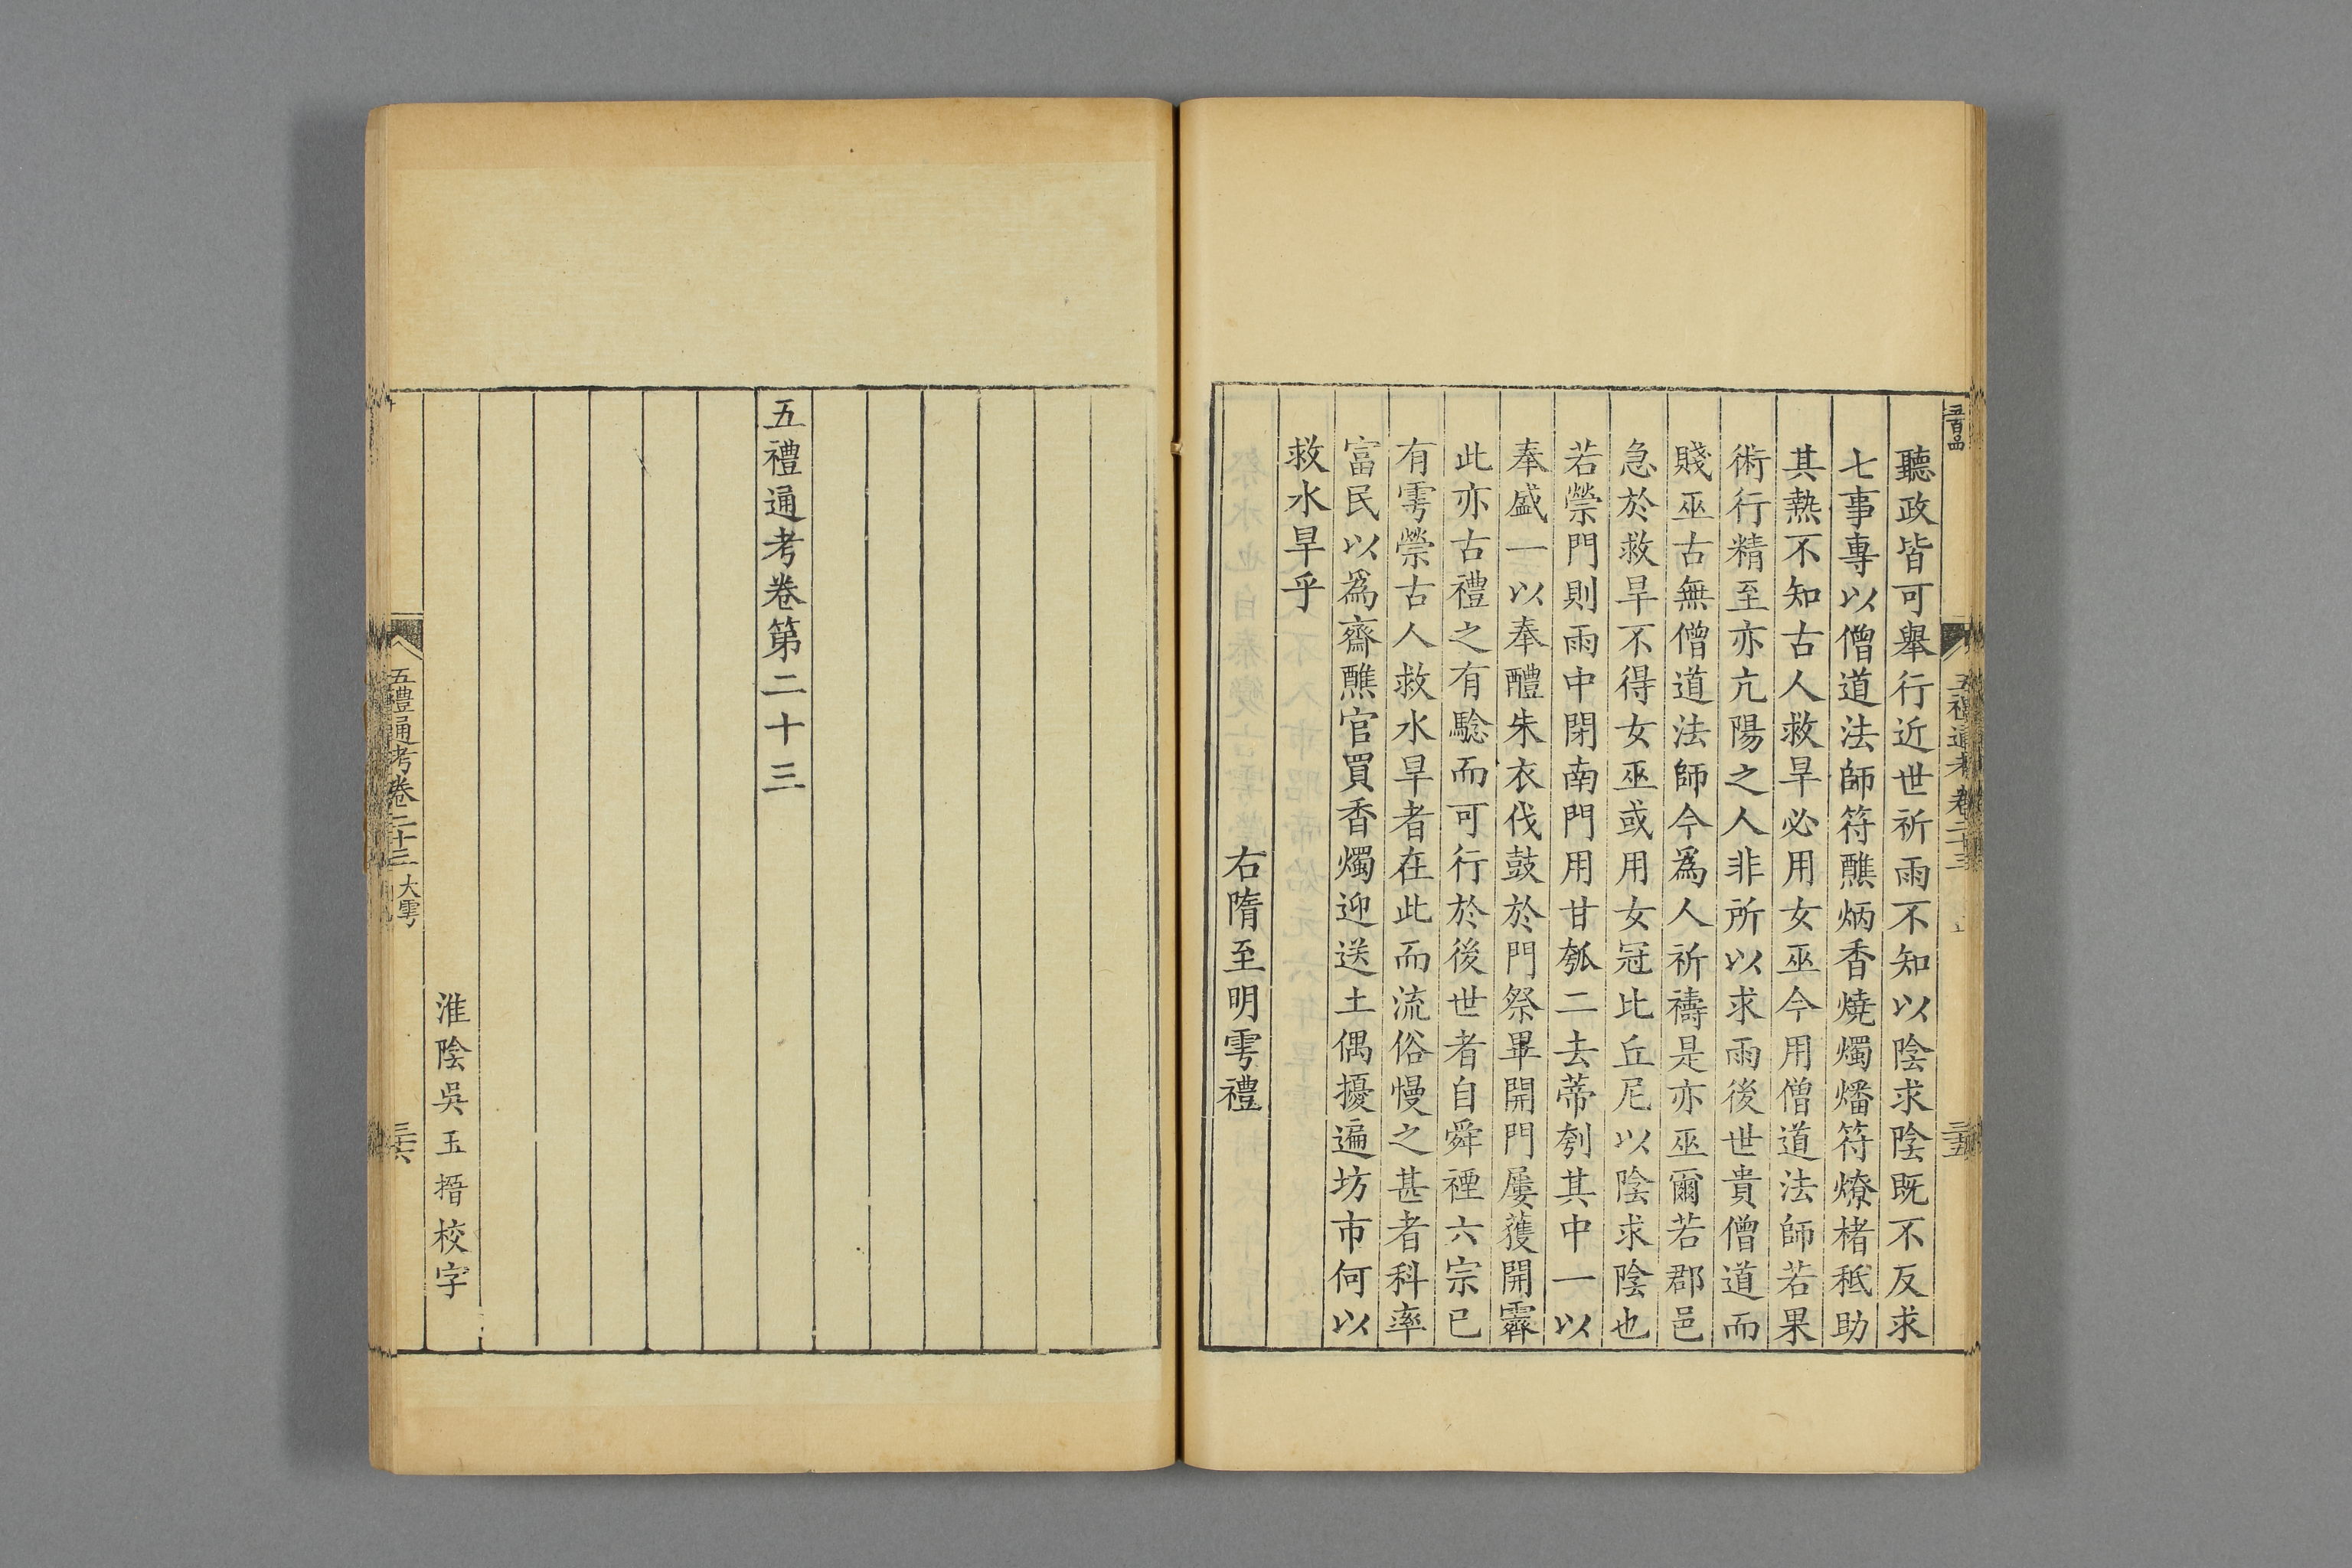 聽政皆可舉行近世祈雨不知以陰求陰既不反求
七事專以僧道法師符醮炳香燒燭燔符燎楮秪助
其熱不知古人救旱必用女巫今用僧道法師若果
術行精至亦亢陽之人非所以求雨後世貴僧道而
賤巫古無僧道法師今為人祈禱是亦巫爾若郡邑
急於救旱不得女巫或用女冠比丘尼以陰求陰也
若禜門則雨中閉南門用甘瓠二去蒂刳其中一以
奉盛一以奉醴朱衣伐鼓於門祭畢開門屢獲開霽
此亦古禮之有驗而可行於後世者自舜禋六宗已
有雩禜古人救水旱者在此而流俗慢之甚者科率
富民以爲齋醮官買香燭迎送土偶擾遍坊市何以
救水旱乎
右隋至明雩禮
五禮通考卷二十三
三五
五禮通考卷第二十三
淮陰吳玉搢校字
五禮通考卷二十三 大雩
三六